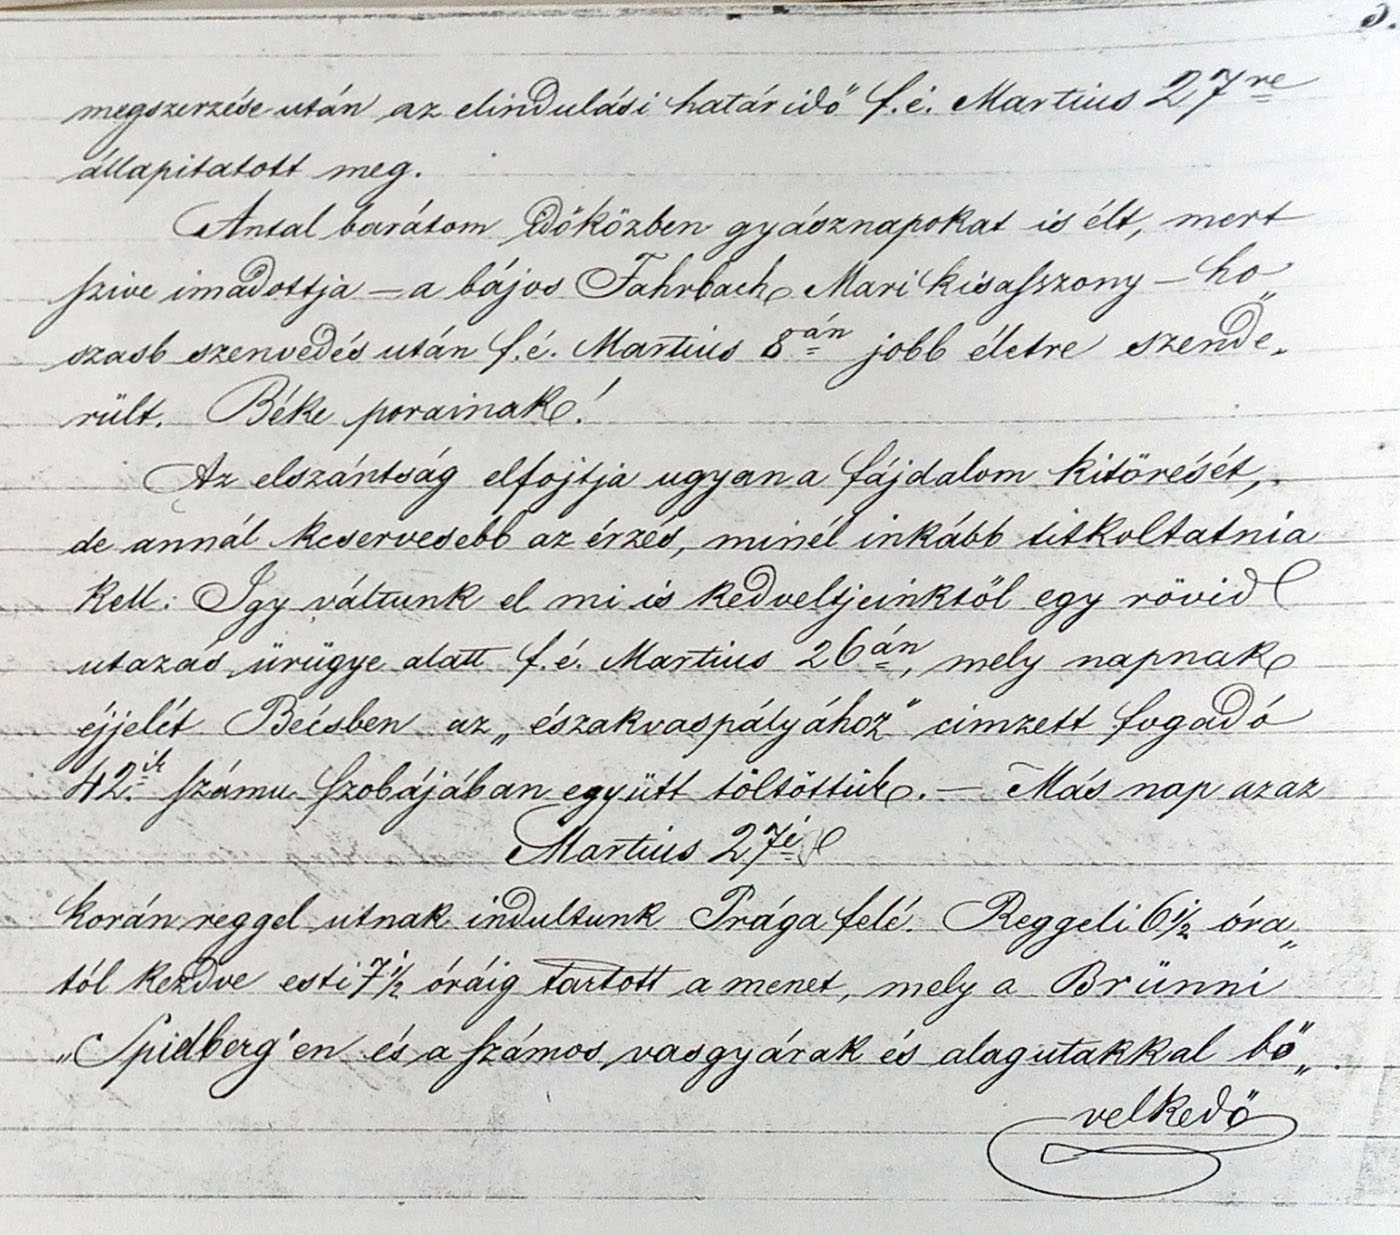 3.
megszerzése után az elindulási határidő f.é. Martius 27re
állapitatott meg.
Antal barátom időközben gyásznapokat is élt, mert
szive imádottja – a bájos Fahrbach Mari kisasszony – ho„
szasb szenvedés után f.é. Martius 8án jobb életre szende„
rült. Béke porainak!
Az elszántság elfojtja ugyan a fájdalom kitörését,
de annál keservesebb az érzés, minél inkább titkoltatnia
kell. Igy váltunk el mi is kedveltjeinktől egy rövid
utazás ürügye alatt f.é. Martius 26án, mely napnak
éjjelét Bécsben az „északvaspályához" cimzett fogadó
42ik számu szobájában együtt töltöttük. – Más nap azaz
Martius 27é
korán reggel utnak indultunk Prága felé. Reggeli 6 1/2 óra„
tól kezdve esti 7 1/2 óráig tartott a menet, mely a Brünni
„Spielberg'en és a számos vasgyárak és alagutakkal bő„
velkedő